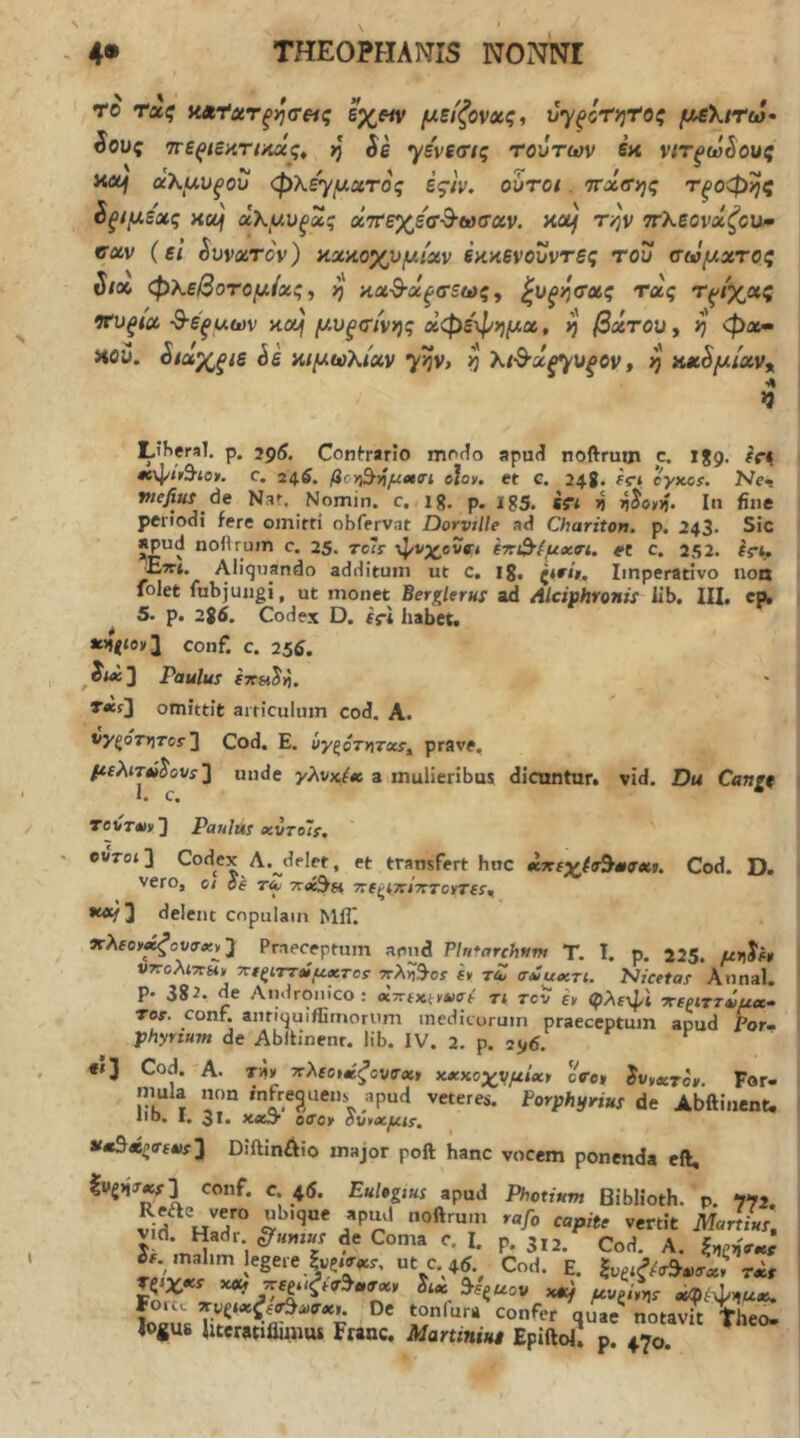 4* THEOPHANIS NONNI
τὸ τὰς κατατρήσεις ἔχειν μείζονας, ὑγρότητος μελιτώ-
δους περιεκτικάς. ἡ δὲ γένεσις τούτων ἐκ νιτρώδους
καὶ ἁλμυροῦ φλέγματός ἐςίν. οὗτοι. πάσης τροφῆς
δριμέας καὶ ἁλμυρᾶς ἀπεχέσθωσαν. καὶ τὴν πλεονάζου-
σαν (εἰ δυνατὸν) κακοχυμίαν ἐκκενοῦντες τοῦ σώματος
διὰ φλεβοτομίας, ἢ καθάρσεως, ξυρήσας τὰς τρίχας
πυρία θέρμων καὶ μυρσίνης ἀφέψημα, ἢ βάτου, ἢ φα-
κοῦ. διάχριε δὲ κιμωλίαν γῆν, ἢ λιθάργυρον, ἢ καδμίαν,
ἢ
Liberal. p. 296. Contrario modo apud nostrum c. 189. ἐςὶ
ἀψίνθιον. c. 246. βοηθήμασι οἷον. et c. 248. ἐςι ὄγκος. Ne-
mesius de Nat. Nomin. c. 18. p. 185. ἐςι ἡ ἡδονή. In fine
periodi fere omitti observat Dorville ad Chariton. p. 243. Sic
apud nostrum c. 25. τοῖς ψυχοῦσι ἐπιθέμασι. et c. 252. ἐςι.
Ἐπί. Aliquando additum ut c. 18. ῥισίν. Imperativo non
solet subjungi, ut monet Berglerus ad Alciphronis lib. III. ep.
5. p. 286. Codex D. ἐςὶ habet.
κηρίον] conf. c. 256.
διὰ] Paulus ἐπειδή.
τὰς] omittit articulum cod. A.
ὑγρότητος] Cod. E. ὑγρότητας, prave.
μελιτώδους] unde γλυκέα a mulieribus dicuntur. vid. Du Cange
l. c.
τούτων] Paulus αὐτοῖς.
οὗτοι] Codex A. delet, et transfert huc ἀπεχέσθωσαν. Cod. D.
vero, οἱ δὲ τῷ πάθει περιπίπτοντες.
καὶ] delent copulam MSS.
πλεονάζουσαν] Praeceptum apud Plutarchum T. I. p. 225. μηδὲν
ὑπολιπεῖν περιττώματος πλῆθος ἐν τῷ σώματι. Nicetas Annal.
p. 382. de Andronico: ἀπεκένωσέ τι τοῦ ἐν φλεψὶ περιττώμα-
τος. conf. antiquissimorum medicorum praeceptum apud Por-
phyrium de Abstinent. lib. IV. 2. p. 296.
εἰ] Cod. A. τὴν πλεονάζουσαν κακοχυμίαν ὅσον δυνατόν. For-
mula non infrequens apud veteres. Porphyrius de Abstinent.
lib. I. 31. καθ' ὅσον δύναμις.
καθάρσεως] Distinctio major post hanc vocem ponenda est.
ξυρήσας] conf. c. 46. Eulogius apud Photium Biblioth. p. 772.
Recte vero ubique apud nostrum raso capite vertit Martius,
vid. Hadr. Junius de Coma c. I. p. 312. Cod. A. ξηρήσας
δέ. malim legere ξυρίσας, ut c. 46. Cod. E. ξυριζέσθωσαν τὰς
τρίχας καὶ περιιζέσθωσαν διὰ θέρμον καὶ μυρίνης ἀφέψημα.
Forte πυριαζέσθωσαν. De tonsura confer quae notavit Theo-
logus literatissimus Franc. Martinius Epistol. p. 470.